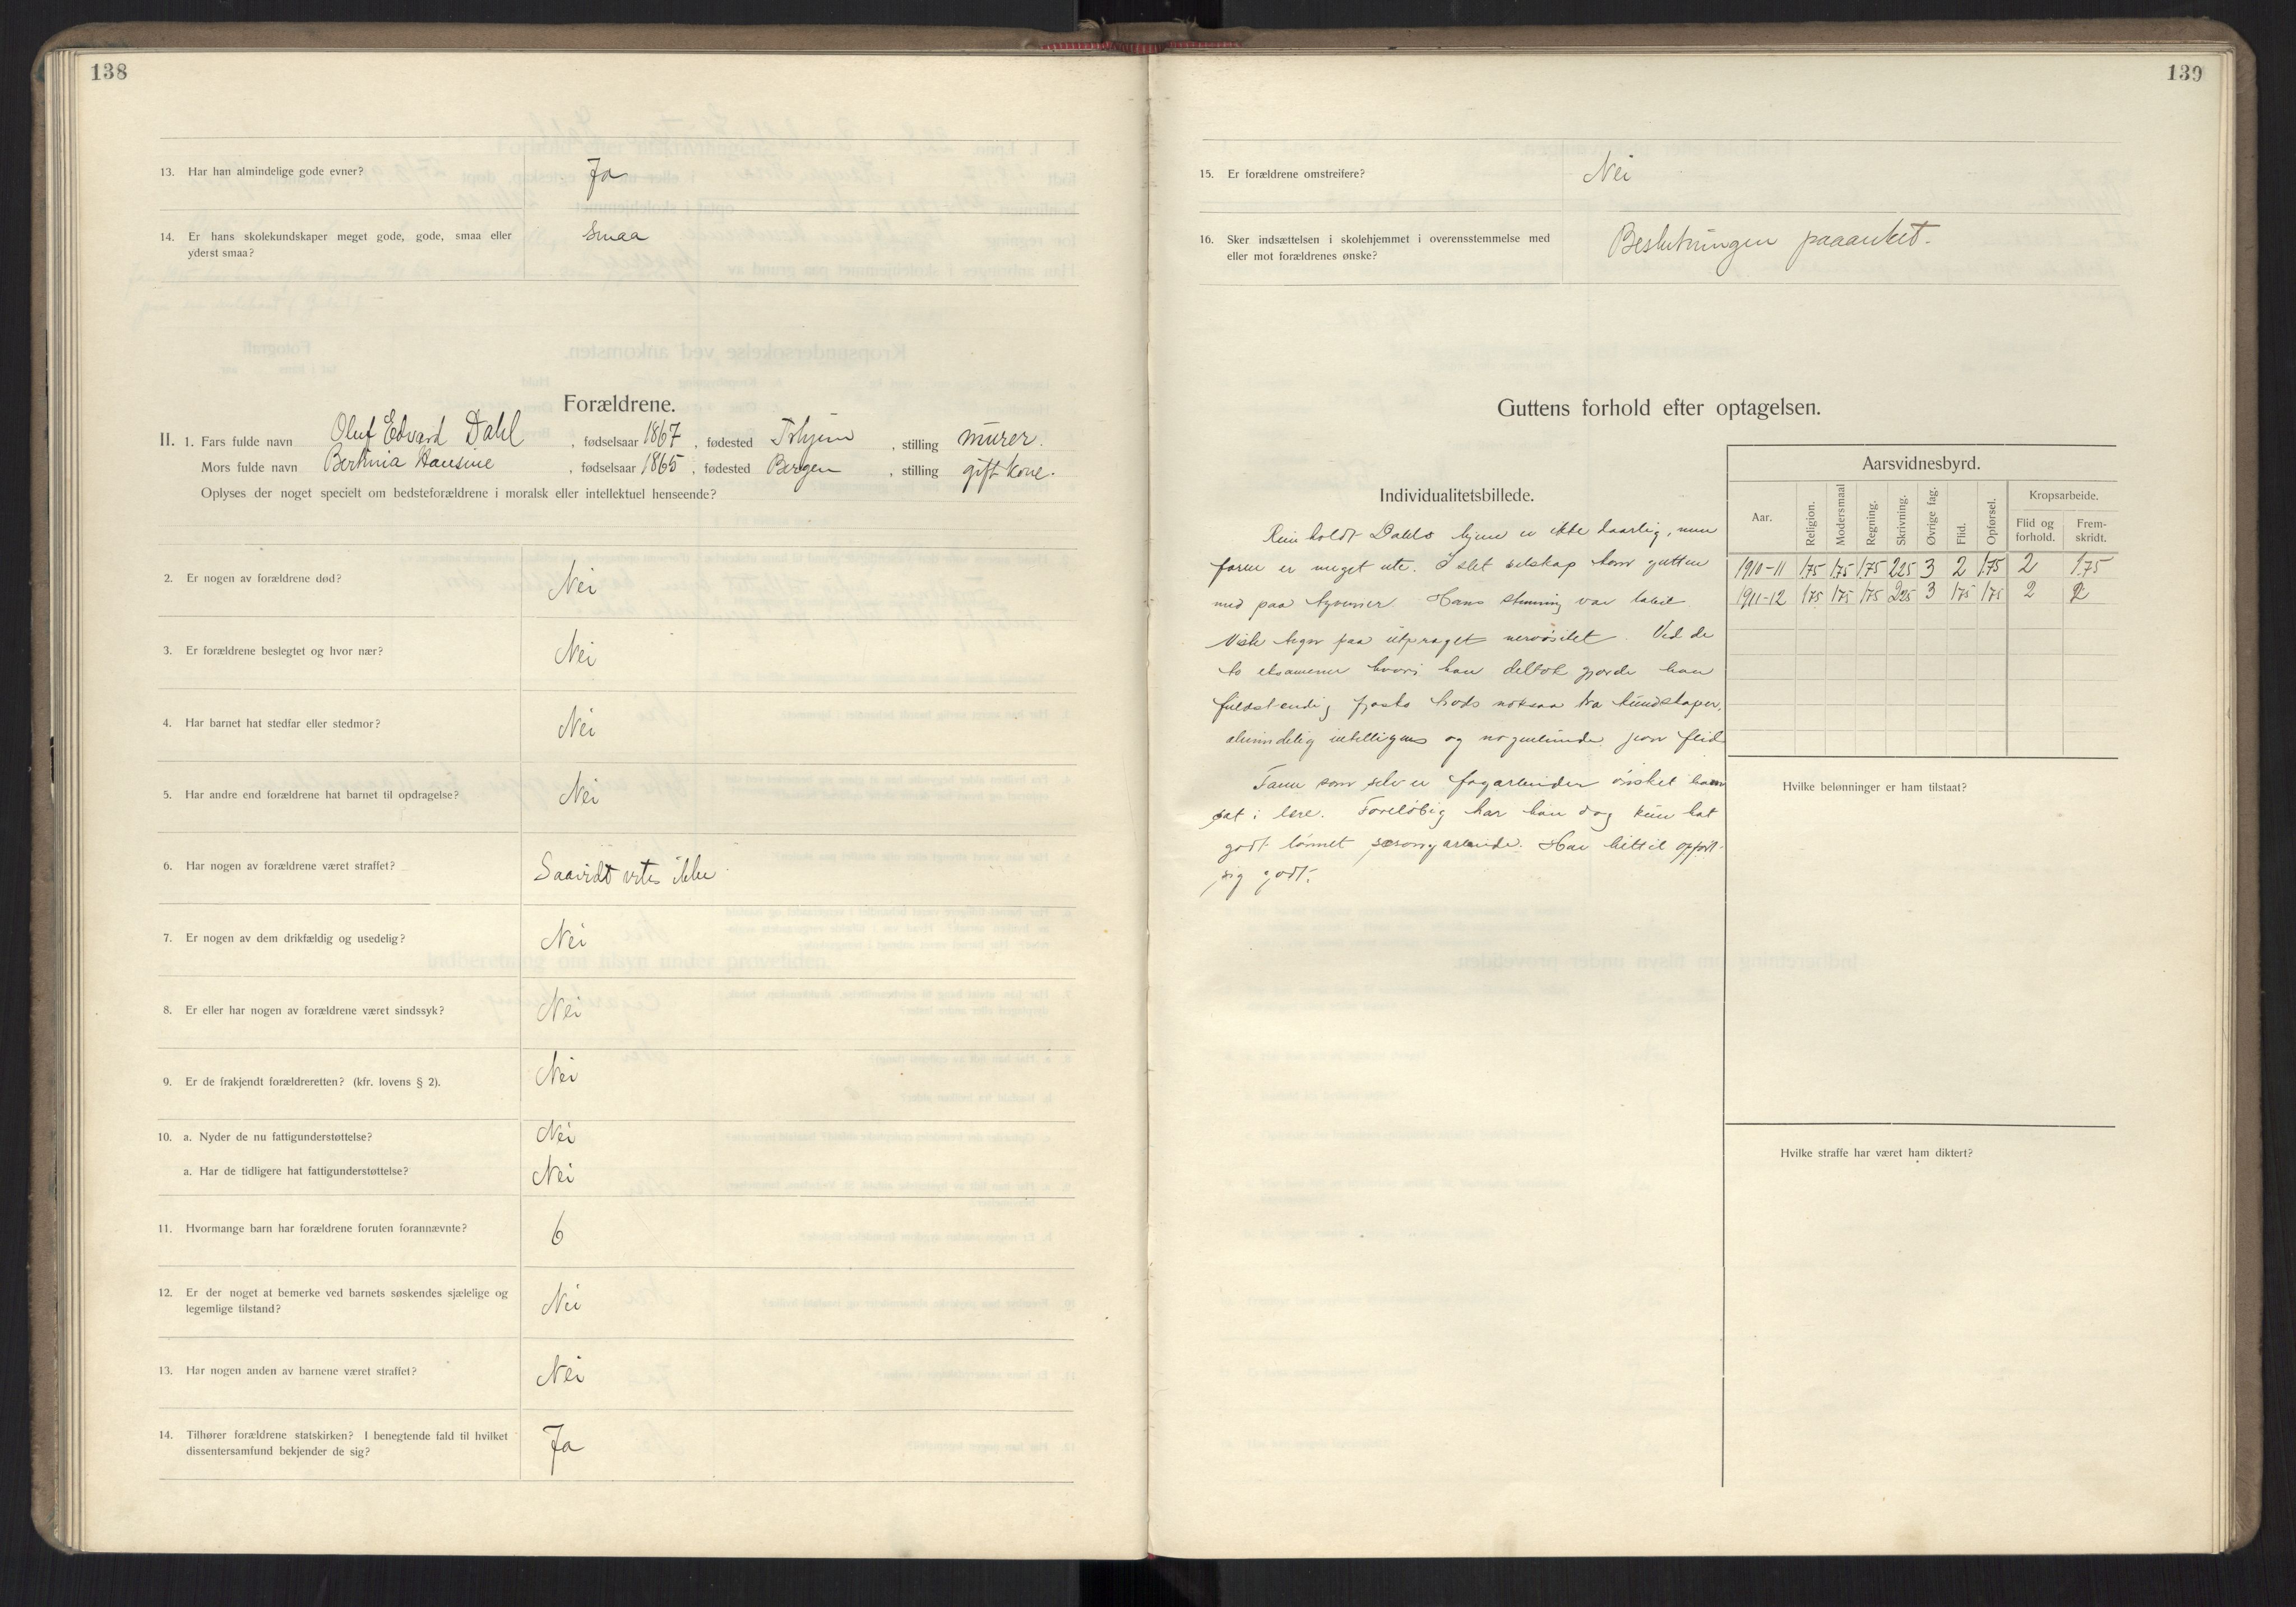 138
13. Har han almindelige gode evner? Ja
14. Er hans skolekundskaper meget gode, gode, smaa eller yderst smaa? Smaa
Forældrene.
II. 1. Fars fulde navn Oluf Edvard Dahl, fødselsaar 1867, fødested Trhjem, stilling murer.
Mors fulde navn Bertinia Hansine, fødselsaar 1865, fødested Bergen, stilling gift kone.
Oplyses der noget specielt om bedsteforældrene i moralsk eller intellektuel henseende?
2. Er nogen av forældrene død? Nei
3. Er forældrene beslegtet og hvor nær? Nei
4. Har barnet hat stedfar eller stedmor? Nei
5. Har andre end forældrene hat barnet til opdragelse? Nei
6. Har nogen av forældrene været straffet? Saavidt vites ikke
7. Er nogen av dem drikfældig og usedelig? Nei
8. Er eller har nogen av forældrene været sindssyk? Nei
9. Er de frakjendt forældreretten? (kfr. lovens § 2). Nei
10. a. Nyder de nu fattigunderstøttelse? Nei
a. Har de tidligere hat fattigunderstøttelse? Nei
11. Hvormange barn har forældrene foruten forannævnte? 6
12. Er der noget at bemerke ved barnets søskendes sjælelige og legemlige tilstand? Nei
13. Har nogen anden av barnene været straffet? Nei
14. Tilhører forældrene statskirken? I benegtende fald til hvilket dissentersamfund bekjender de sig? Ja
139
15. Er forældrene omstreifere? Nei
16. Sker indsættelsen i skolehjemmet i overensstemmelse med eller mot forældrenes ønske? Beslutningen paaanket.
Guttens forhold efter optagelsen.
Individualitetsbillede.
Reinholdt Dahls hjem er ikke daarlig, men
faren er meget ute. I slet selskap kom gutten
ind paa tyverier. Hans stemning var labil
Viste tegn paa utpræget nervøsitet. Ved de
to eksamener hvori han deltok gjorde han
fuldstendig fiasko trods noksaa bra kundskaper,
almindelig intelligens og nogenlunde jevn flid
Faren som selv er fagarbeider ønsket ham
sat i lære. Foreløbig har han dog kun hat
godt lønnet sesongarbeide. Har hittil opført
sig godt.
Aarsvidnesbyrd.
Aar. Religion. Modersmaal Regning. Skrivning. Øvrige fag. Flid. Opførsel. Kropsarbeide. Flid og forhold. Fremskridt.
1910-11 1.75 1.75 1.75 2.25 3 2 1.75 2 1.75
1911-12 1.75 1.75 1.75 2.25 3 1.75 1.75 2 2
Hvilke belønninger er ham tilstaat?
Hvilke straffe har været ham diktert?